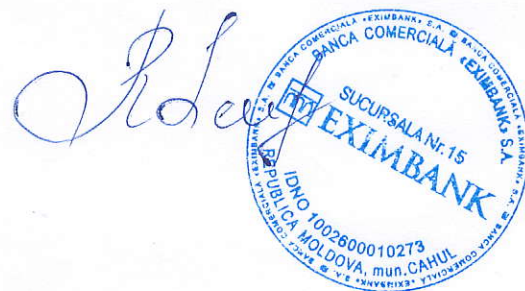 BANCA COMERCIALĂ «EXIMBANK» S.A.
BANCA COMERCIALĂ «EXIMBANK» S.A.
SUCURSALA Nr.15
EXIMBANK
IDNO 1002600010273
REPUBLICA MOLDOVA, mun.CAHUL